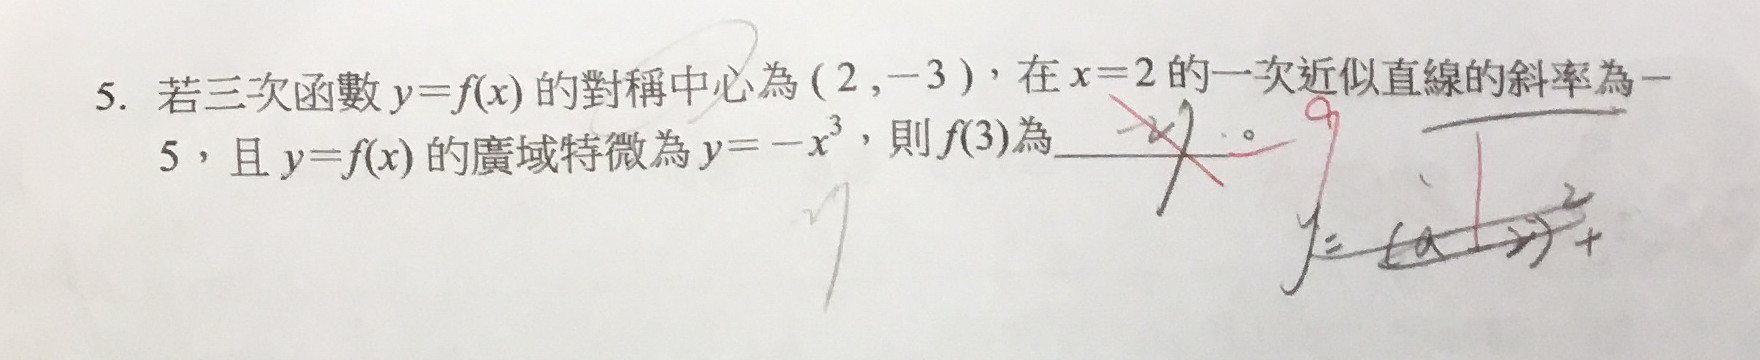 5. 若三次函數 y=f(x) 的對稱中心為 ( 2 , −3 )，在 x=2 的一次近似直線的斜率為−
5，且 y=f(x) 的廣域特微為 y=−x³，則 f(3)為 。
y= (a )² +